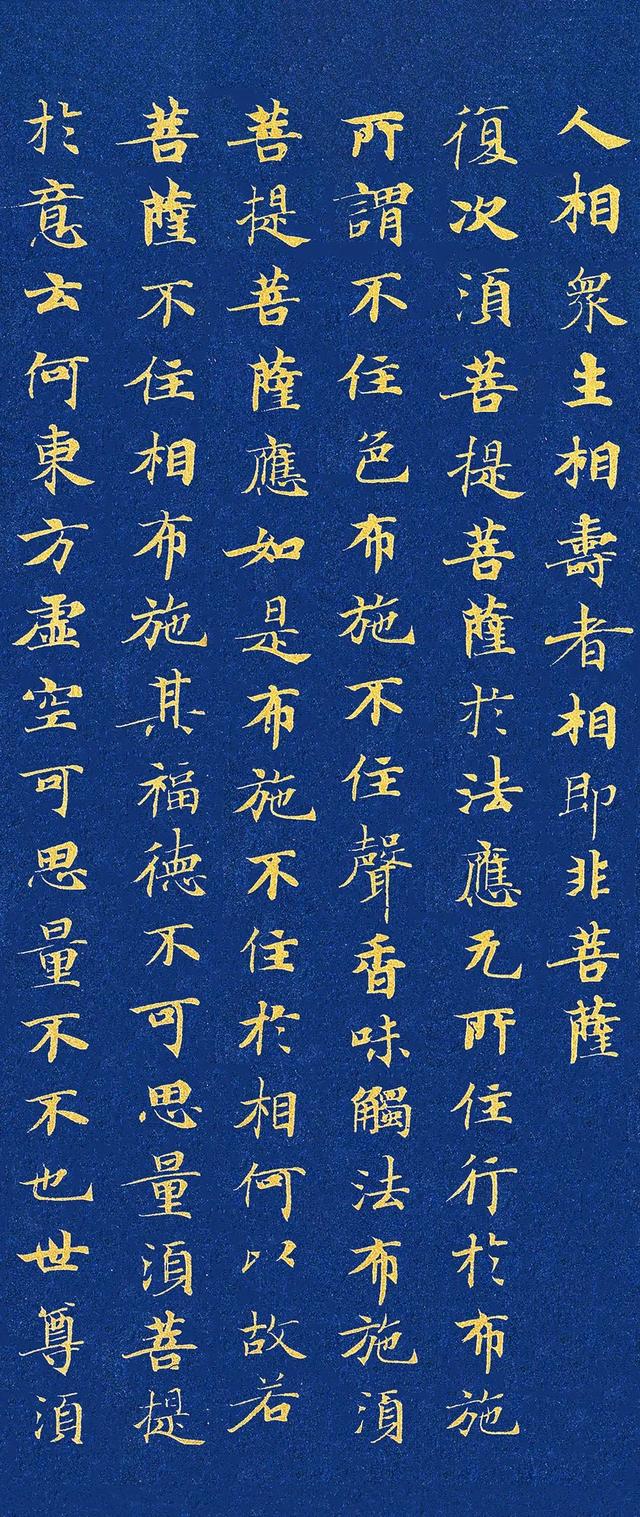 人相衆生相壽者相即非菩薩
復次須菩提菩薩於法應无所住行於布施
所謂不住色布施不住聲香味觸法布施須
菩提菩薩應如是布施不住於相何以故若
菩薩不住相布施其福德不可思量須菩提
於意云何東方虛空可思量不不也世尊須